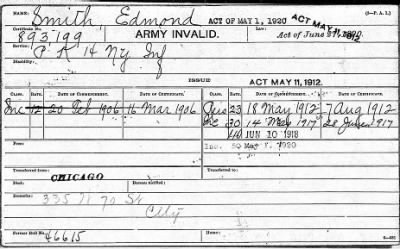 Name Smith Edmond ACT OF MAY 1, 1920 ACT MAY 11, 1912. (3-P.A.I.)
Certificate No. 893199 ARMY INVALID. Law: Act of June 27, 1890.
Service: P. H Ny Inf
Disability:
ISSUED ACT MAY 11, 1912.
CLASS. RATE. DATE OF COMMENCEMENT. DATE OF CERTIFICATE. CLASS. RATE. DATE OF COMMENCEMENT. DATE OF CERTIFICATE.
Inc 12 20 Feb 1906 16 Mar 1906 23 18 May 1912 7 Aug 1912
30 14 May 1917 28 1917
JUN 10 1918
From: Inc. 50 May 1, 1920
Transferred from:
CHICAGO
Transferred to: Date of transfer:
Remarks: 335 N 70 St
City
Former Roll No. 46615